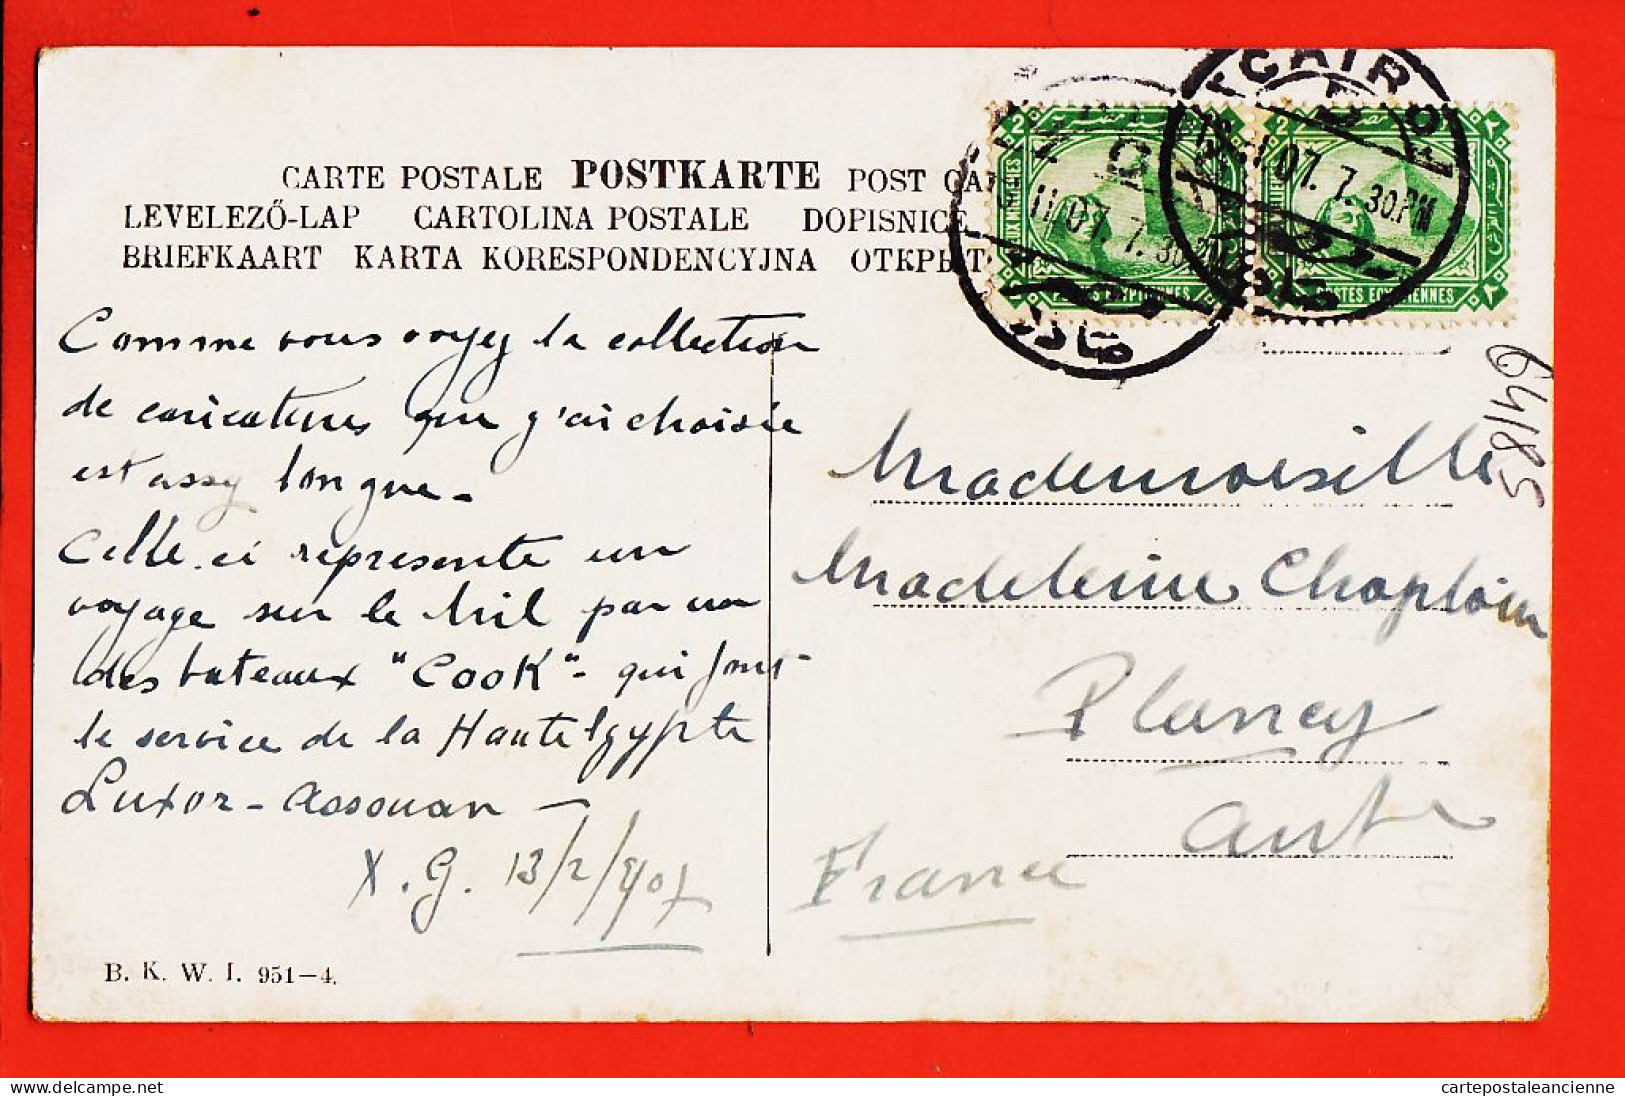 CARTE POSTALE POSTKARTE POST CAR
LEVELEZŐ-LAP CARTOLINA POSTALE DOPISNICE
BRIEFKAART KARTA KORESPONDENCYJNA ОТКРЫТ
Comme vous voyez la collection
de caricatures que j'ai choisie
est assez longue -
Celle-ci représente un
voyage sur le Nil par un
des bateaux "Cook" - qui font
le service de la Haute Egypte
Luxor - Assouan -
X. G. 13/2/907
B. K. W. I. 951-4.
CAIRO
11 07. 7.30PM
07. 7.30PM
2
2
POSTES EGYPTIENNES
POSTES EGYPTIENNES
64185
Mademoiselle
Madeleine Chaploin
Plancy
Aube
France
cartepostaleancienne